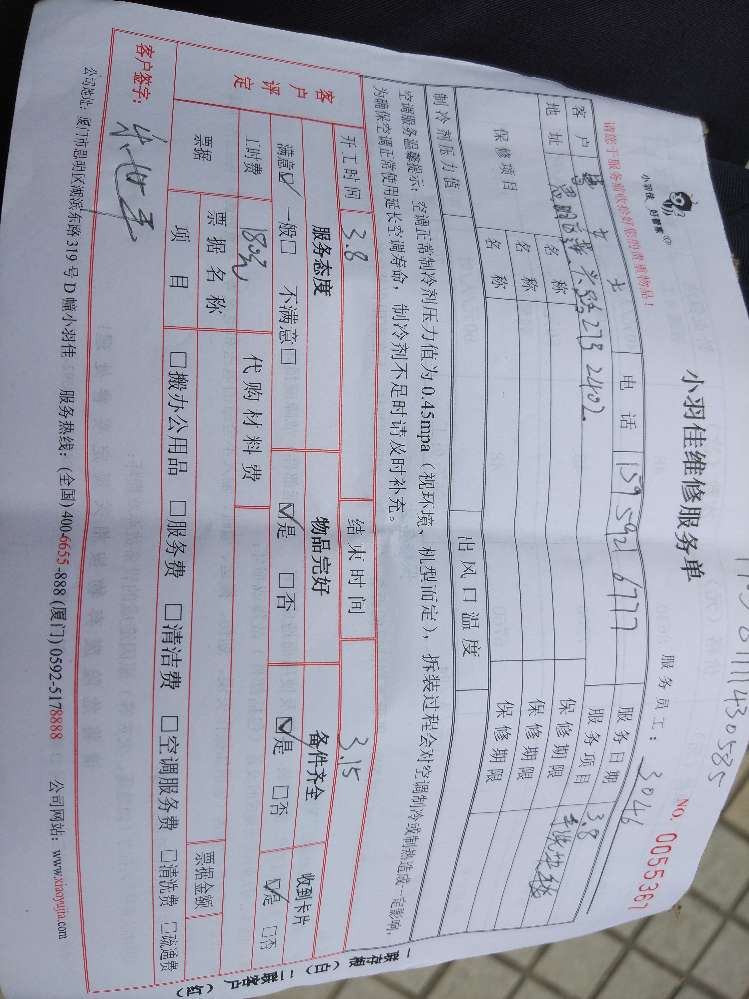 小羽佳维修服务单
NO. 0055367
小羽佳 好管家
服务员工: 3046
请您于服务前收拾好您的贵重物品!
客户 女士 电话 159 5921 6777 服务日期 3.8
地址 2402 服务项目
保修项目 名称 保修期限
名称 保修期限
名称 保修期限
制冷剂压力值 出风口温度
空调服务温馨提示: 空调正常制冷剂压力值为0.45mpa(视环境、机型而定), 拆装过程会对空调制冷或制热造成一定影响,
为确保空调正常使用延长空调寿命, 制冷剂不足时请及时补充。
开工时间 3.8 结束时间 3.15
客户评定 服务态度 物品完好 备件齐全 收到卡片
满意☑ 一般□ 不满意□ ☑是 □否 ☑是 □否 ☑是 □否
工时费 180元 代购材料费
票据 票据名称 票据金额
项目 □搬办公用品 □服务费 □清洁费 □空调服务费 □清洗费 □疏通费
客户签字:
公司地址: 厦门市思明区湖滨东路319号D幢小羽佳 服务热线: (全国) 400-6655-888 (厦门) 0592-5178888 公司网站: www.xiaoyujia.com
一联存根(白) 二联客户(红)